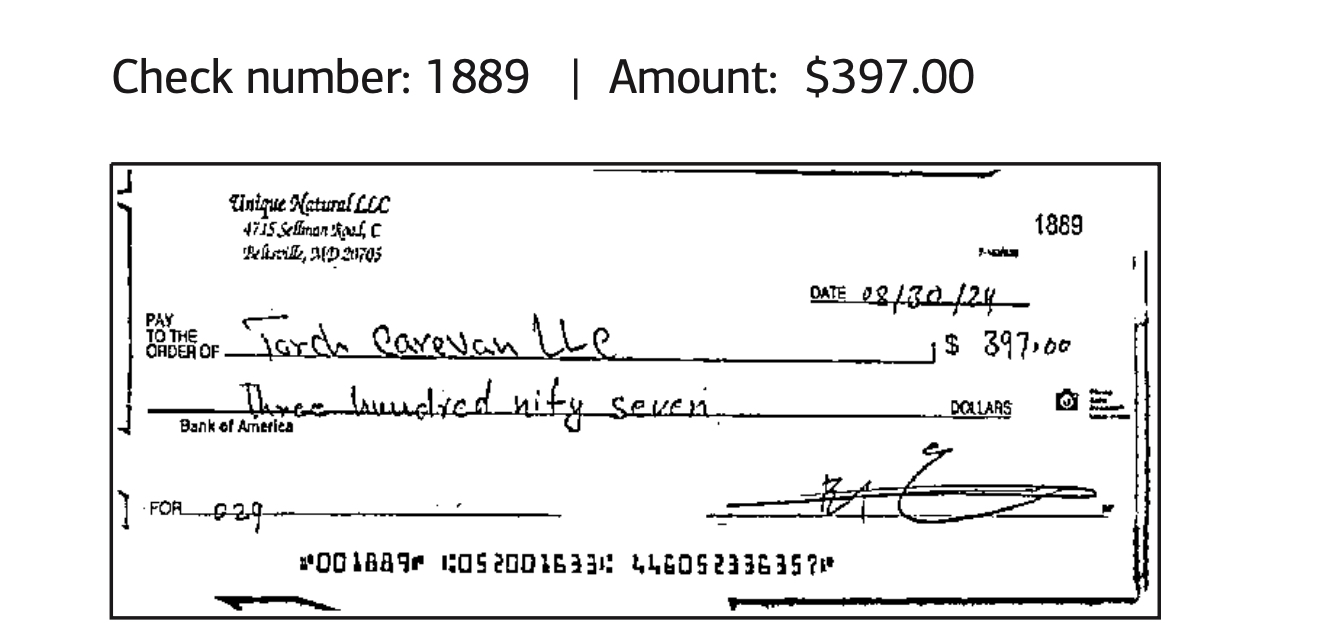 Check number: 1889 | Amount: $397.00
Unique Natural LLC
4715 Sellman Road, C
Beltsville, MD 20705
1889
DATE 08/30/24
PAY TO THE ORDER OF Torch Carevan LLC $ 397.00
Three hundred nify seven DOLLARS
Bank of America
FOR 029
⑈001889⑈ ⑆052001633⑆ 446052336357⑈